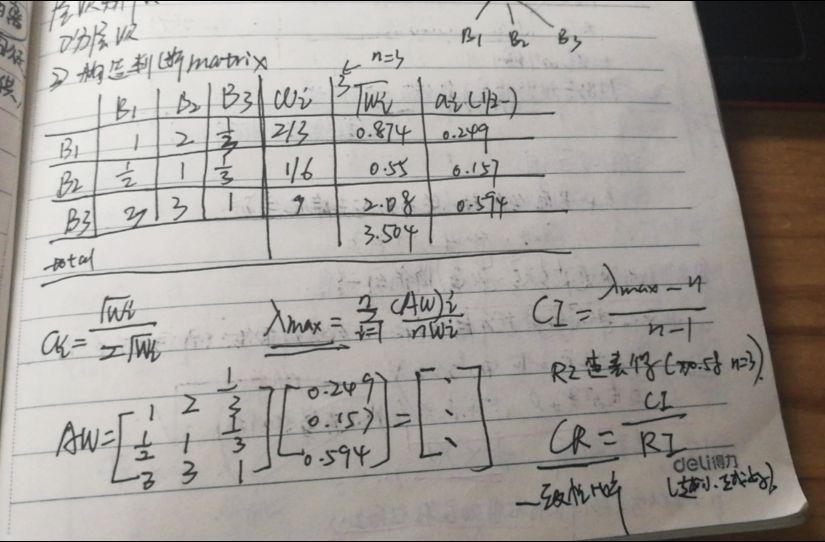 B1 B2 B3
② 构造判断matrix
n=3
B1 B2 B3 Wi 3√Wi ai(归一)
B1 1 2 1/3 2/3 0.874 0.249
B2 1/2 1 1/3 1/6 0.55 0.157
B3 3 3 1 9 2.08 0.594
total 3.504
ai = √Wi / Σ√Wi
λmax = Σ i=1 n (AW)i / nWi
CI = λmax - n / n-1
RI 查表得 (0.58 n=3)
AW = [1 2 1/3
1/2 1 1/3
3 3 1] [0.249
0.157
0.594] = [⋱]
CR = CI / RI
一致性比率
deli得力